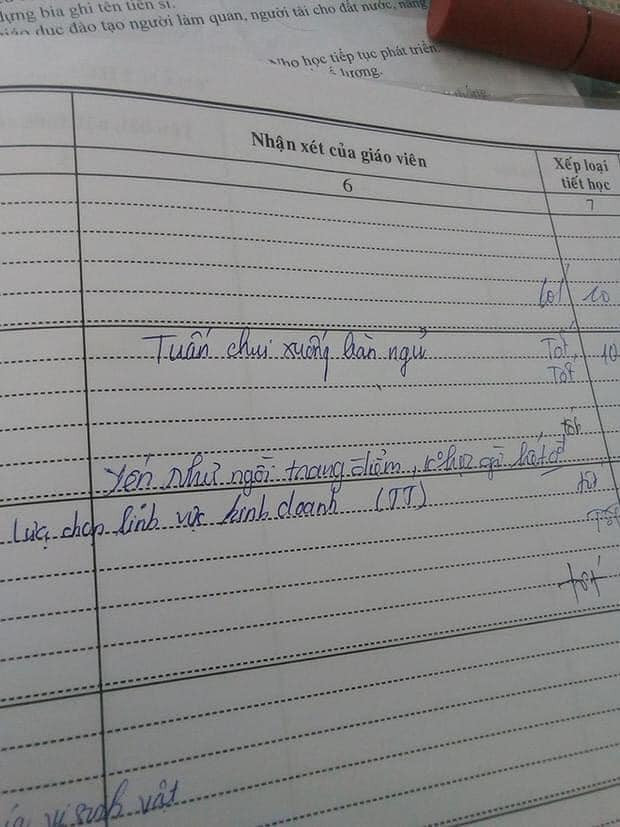 dựng bia ghi tên tiến sĩ.
giáo dục đào tạo người làm quan, người tài cho đất nước, nâng
Nho học tiếp tục phát triển.
Nhận xét của giáo viên
Xếp loại tiết học
6
7
Tốt 10
Tuấn chui xuống bàn ngủ
Tốt, 10
Tốt
tốt
Yến Như ngồi trang điểm, k học gì hết cả
tốt
Lựa chọn lĩnh vực kinh doanh (TT)
Tốt
tốt
vi sinh vật